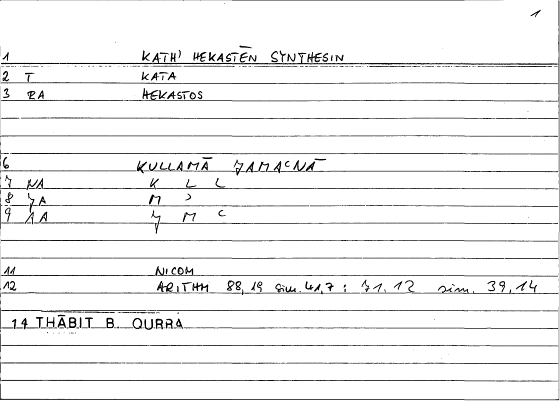 1
1 KATH' HEKASTĒN SYNTHESIN
2 T KATA
3 RA HEKASTOS
6 KULLAMĀ ȜAMAʿNĀ
7 NA K L L
8 ȜA M ʾ
9 AA Ȝ M ʿ
11 NICOM
12 ARITHM 88,19 sim. 41,7 : 71.12 sim. 39,14
14 THĀBIT B. QURRA